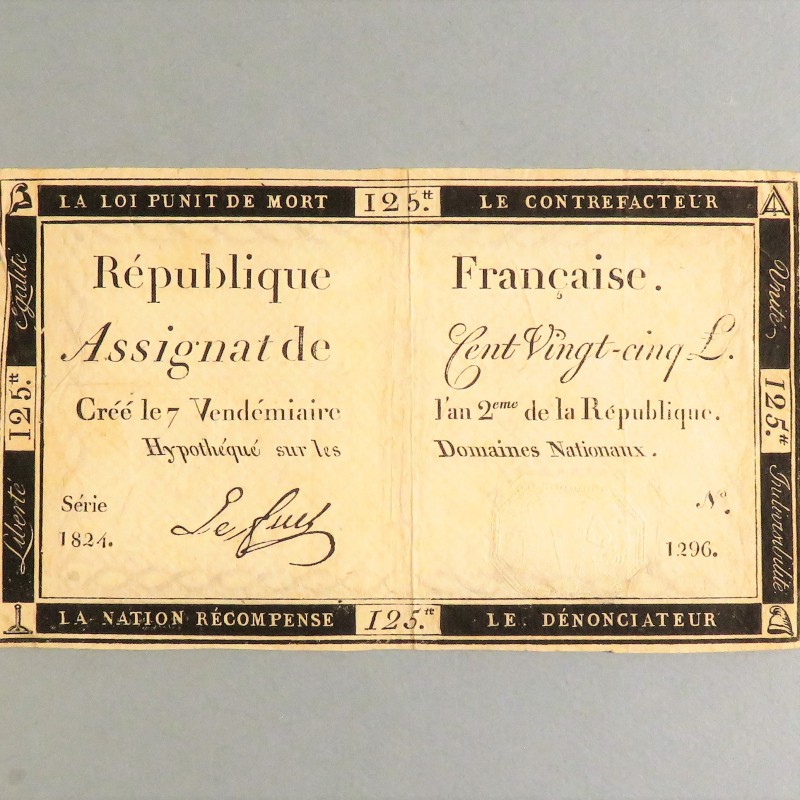 LA LOI PUNIT DE MORT 125.tt LE CONTREFACTEUR
Egalité
Unité
République Française.
Assignat de Cent Vingt-cinq L.
Créé le 7 Vendémiaire l'an 2eme de la République.
Hypothéqué sur les Domaines Nationaux.
125.tt
125.tt
Série
1824.
No.
1296.
Liberté
Indivisibilité
LA NATION RÉCOMPENSE 125.tt LE DÉNONCIATEUR